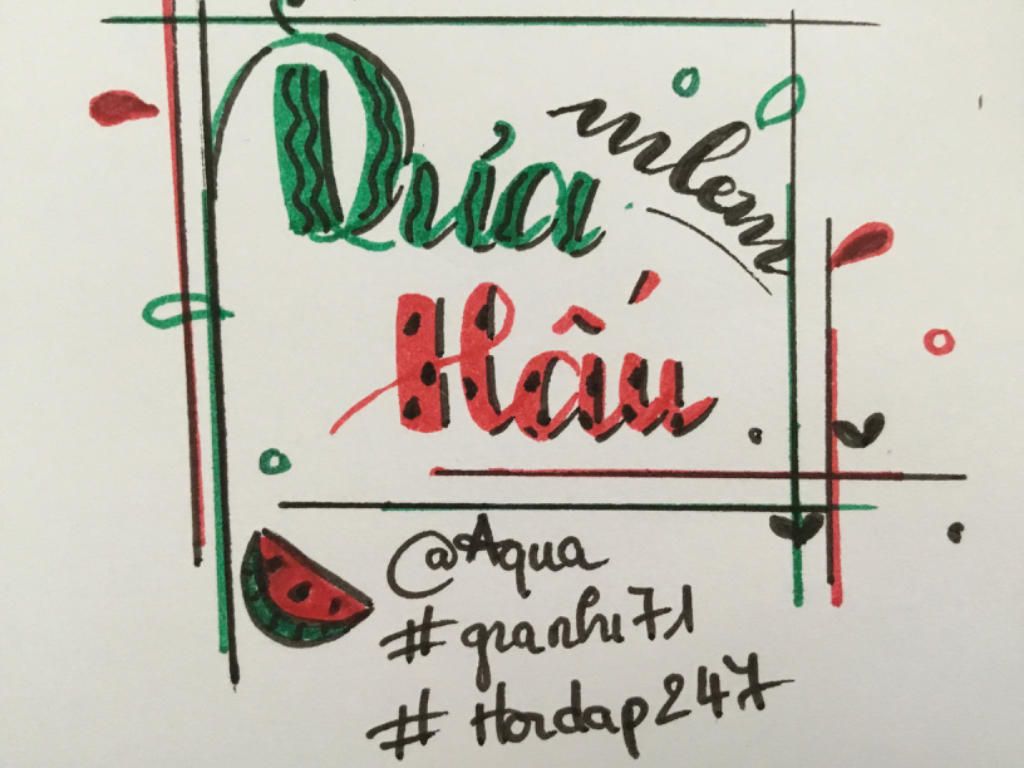 Dưa
mlem
Hấu
@Aqua
#granhi71
#Hordap247